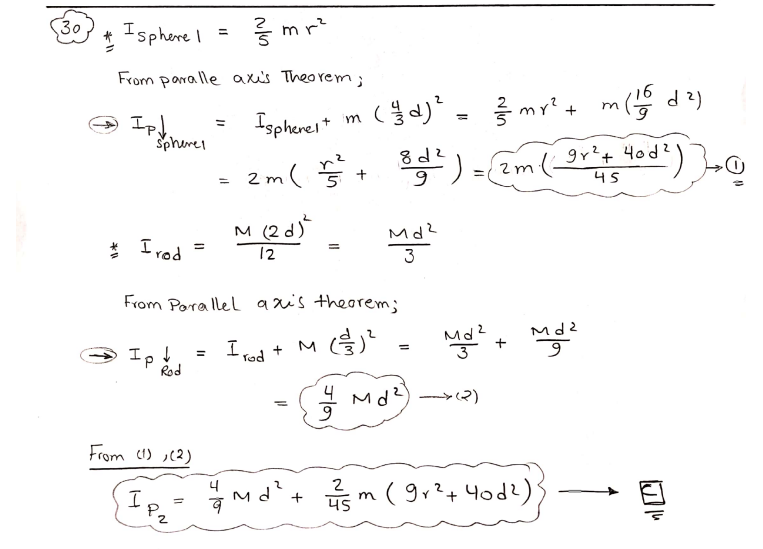 30 * I sphere 1 = 2/5 m r²
From paralle axis Theorem;
→ I_P↓ sphere1 = I sphere1 + m (4/3 d)² = 2/5 m r² + m (16/9 d²)
= 2m ( r²/5 + 8d²/9 ) = 2m ( 9r² + 40d² / 45 ) → ①
* I rod = M (2d)² / 12 = Md²/3
From Parallel axis theorem;
→ I_P↓ Rod = I rod + M (d/3)² = Md²/3 + Md²/9
= 4/9 Md² → (2)
From (1) , (2)
I_P₂ = 4/9 Md² + 2/45 m ( 9r² + 40d² ) → E